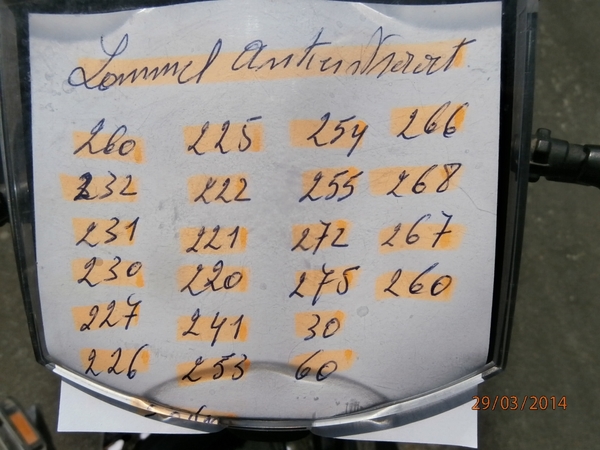 Lommel
260 225 254 266
232 222 255 268
231 221 272 267
230 220 275 260
227 241 30
226 253 60
29/03/2014